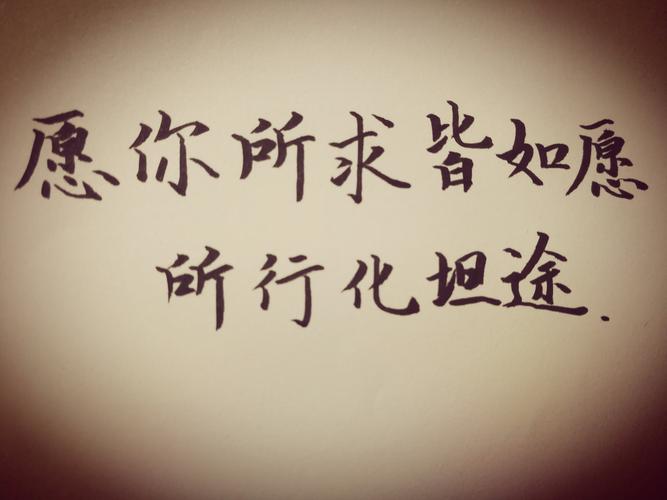 愿你所求皆如愿
所行化坦途.